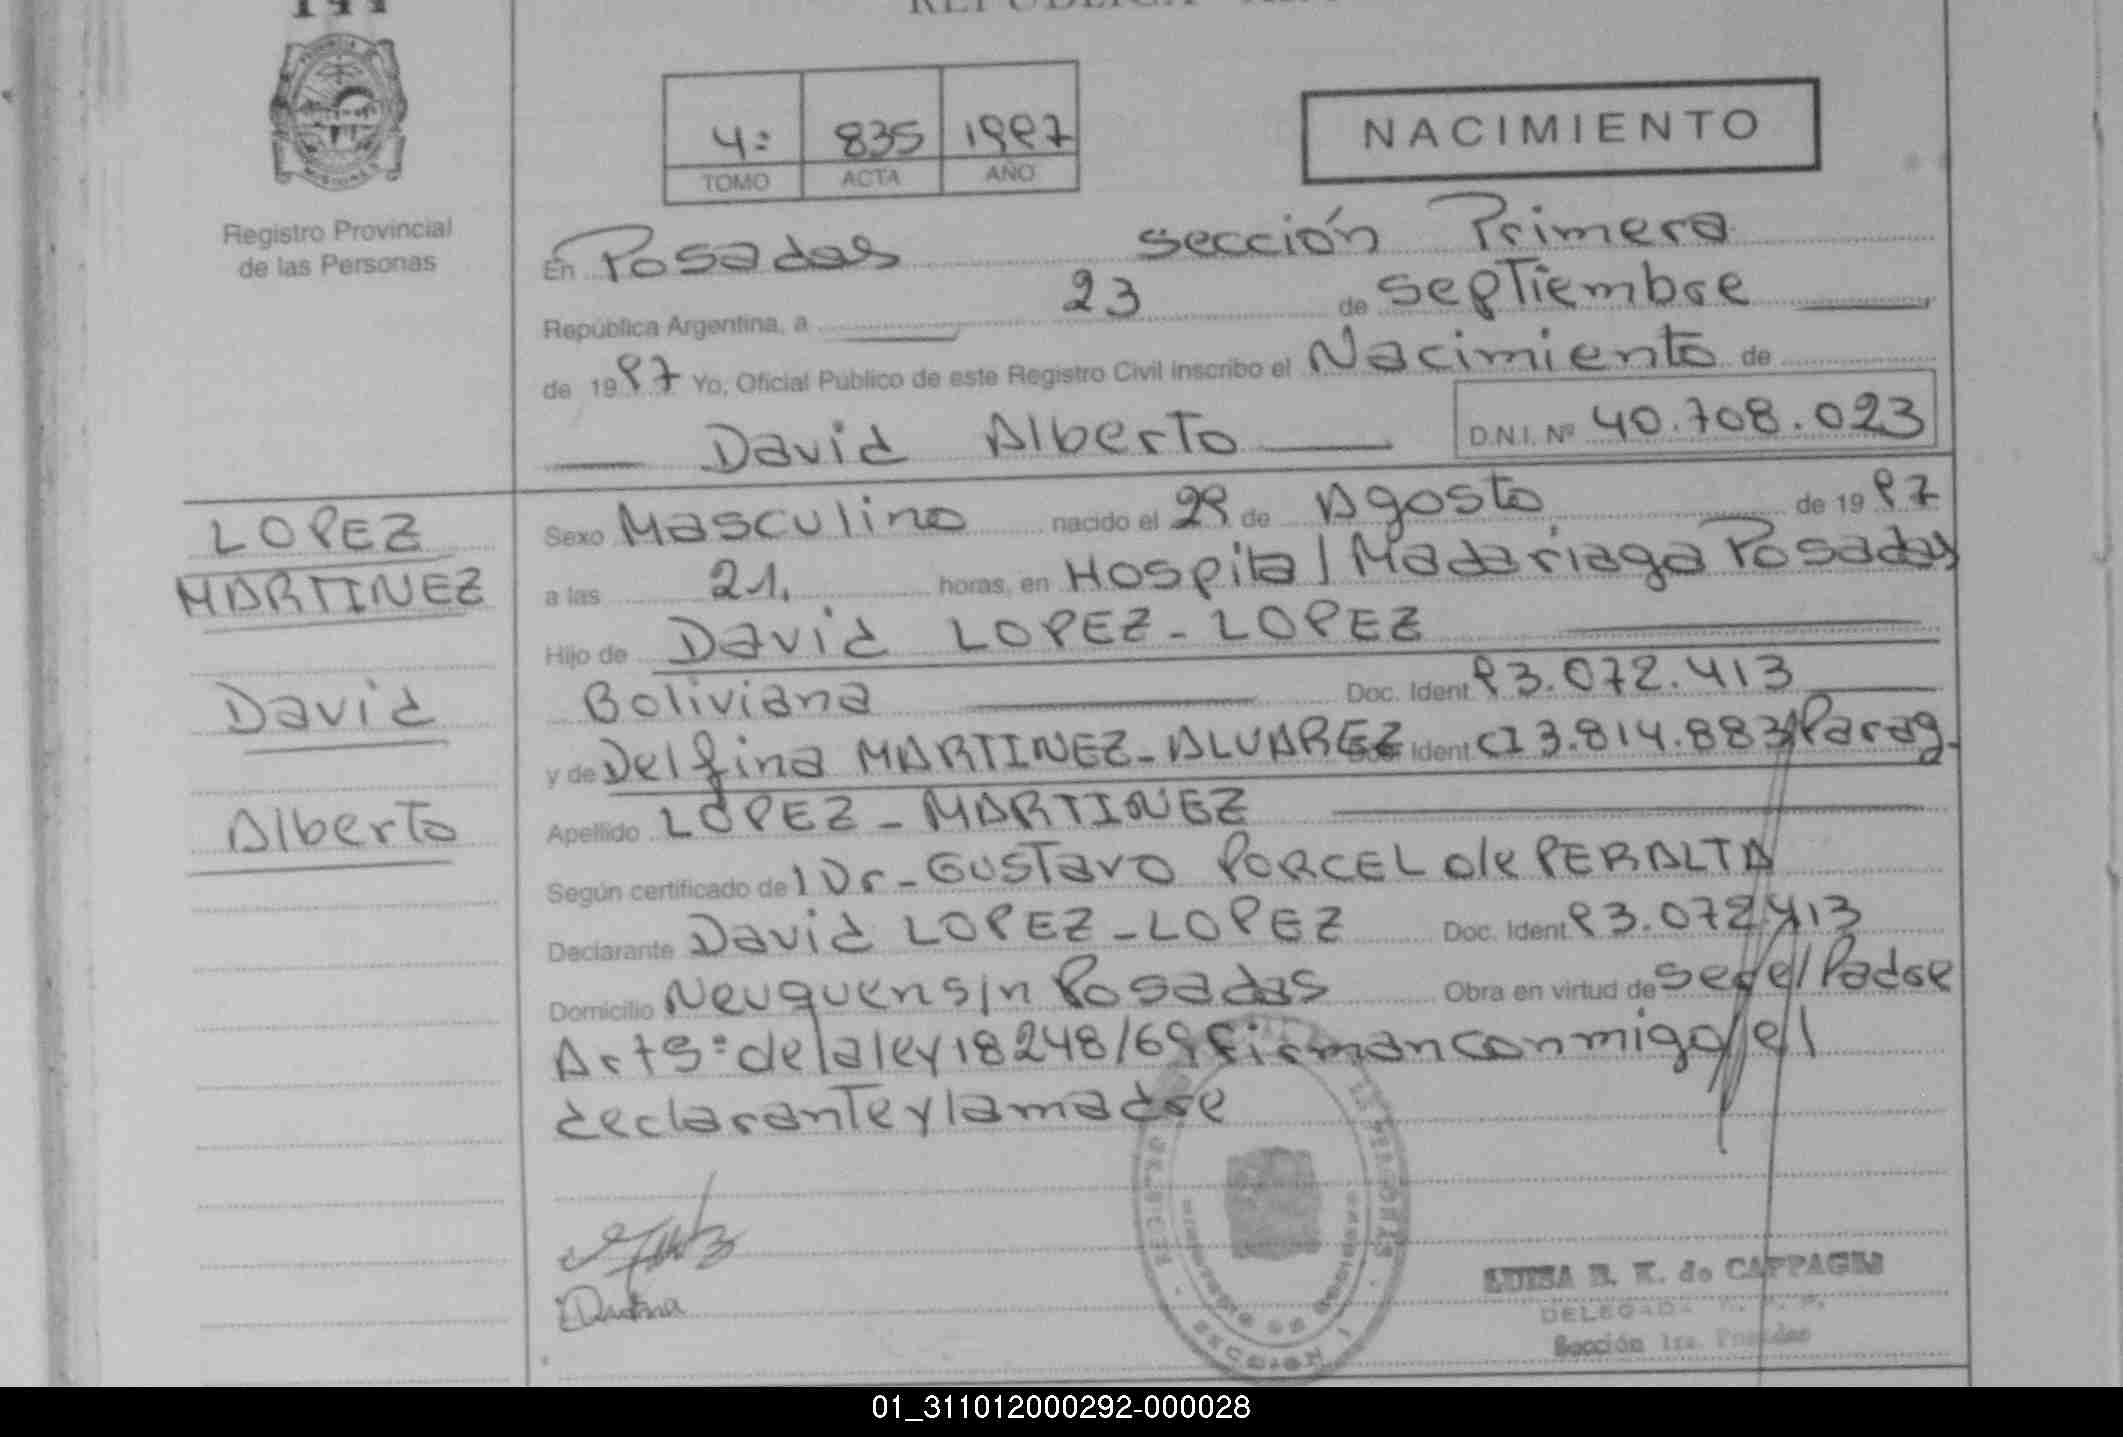 Registro Provincial
de las Personas
4:
835
1997
TOMO
ACTA
AÑO
NACIMIENTO
En Posadas sección Primera
República Argentina, a 23 de septiembre
de 1997 Yo, Oficial Público de este Registro Civil inscribo el Nacimiento de
David Alberto
D.N.I. Nº 40.708.023
LOPEZ
MARTINEZ
David
Alberto
Sexo Masculino nacido el 29 de Agosto de 1997
a las 21. horas, en Hospital Madariaga Posadas
Hijo de David LOPEZ - LOPEZ
Boliviana Doc. Ident 93.072.413
y de Delfina MARTINEZ - ALVAREZ Ident CI 3.814.883 Parag.
Apellido LOPEZ - MARTINEZ
Según certificado del Dr - GUSTAVO PORCEL de PERALTA
Declarante David LOPEZ - LOPEZ Doc. Ident 93.072.413
Domicilio Neuquen s/n Posadas Obra en virtud de ser el Padre
Art 5º de la ley 18248/69 firman conmigo el
declarante y la madre
LUISA B. K. de CAPPAGLI
DELEGADA
Sección 1ra. Posadas
01_311012000292-000028